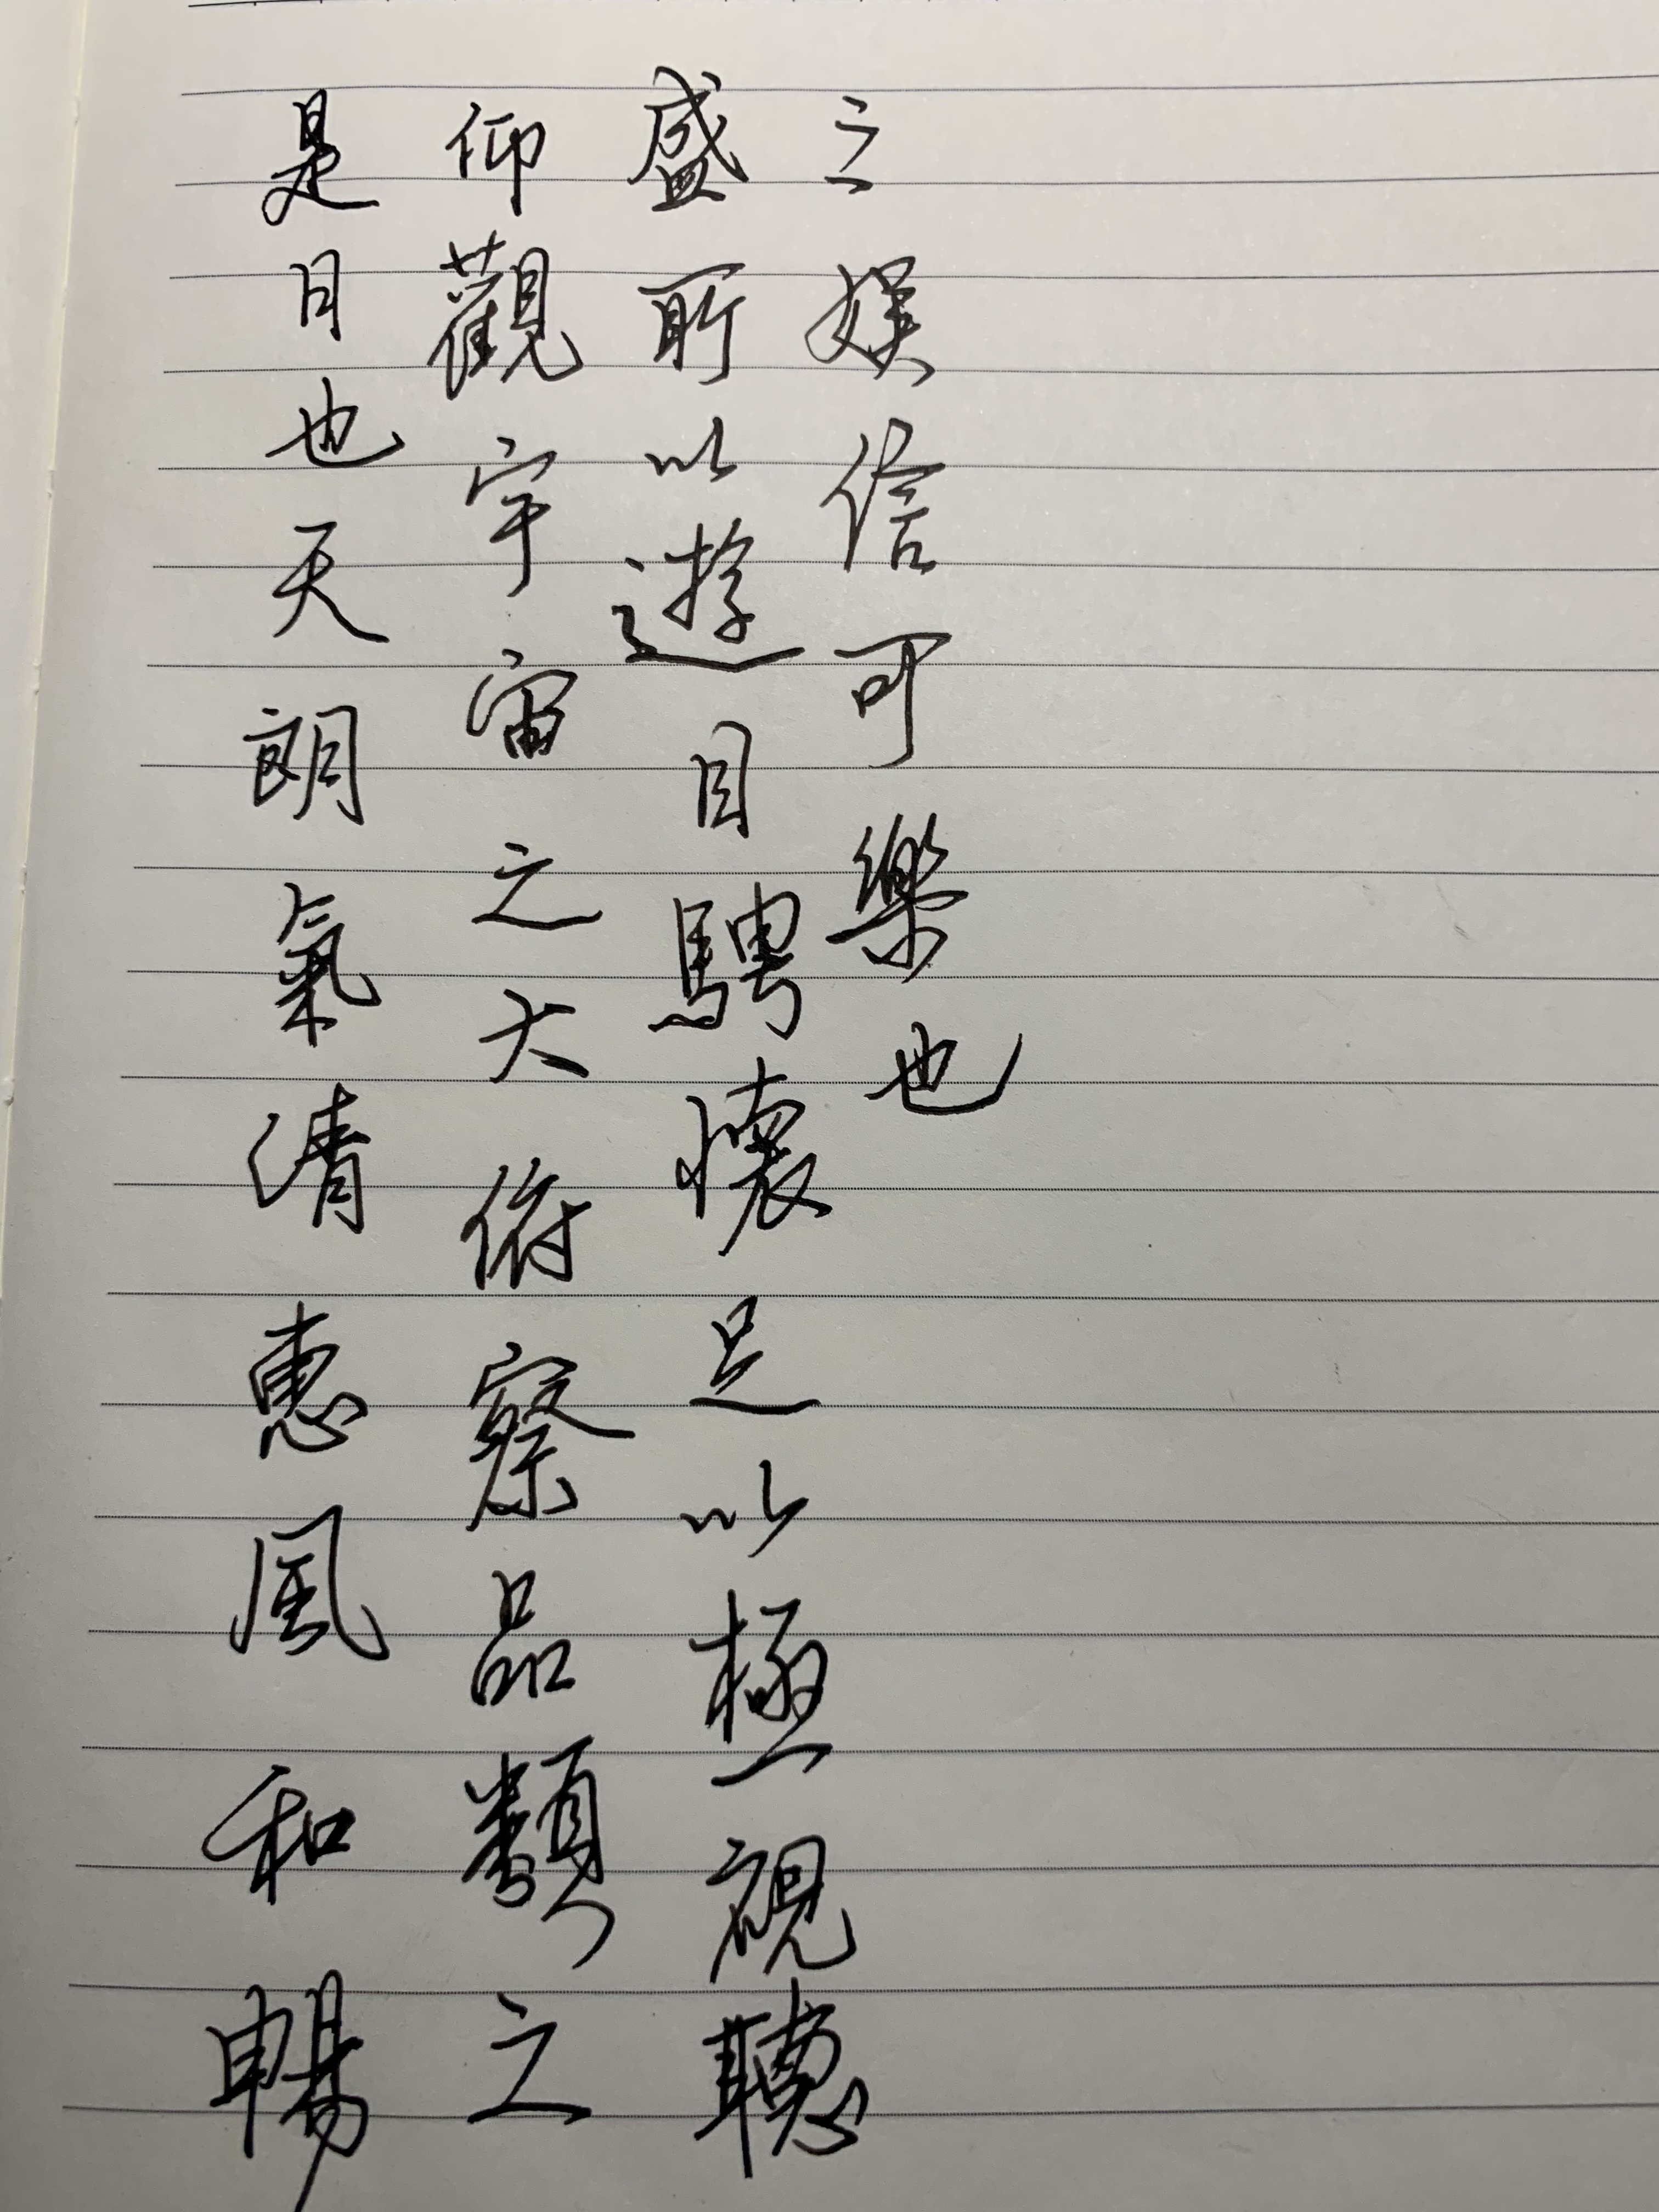 是日也天朗氣清惠風和暢
仰觀宇宙之大俯察品類之
盛所以遊目騁懷足以極視聽
之娱信可樂也